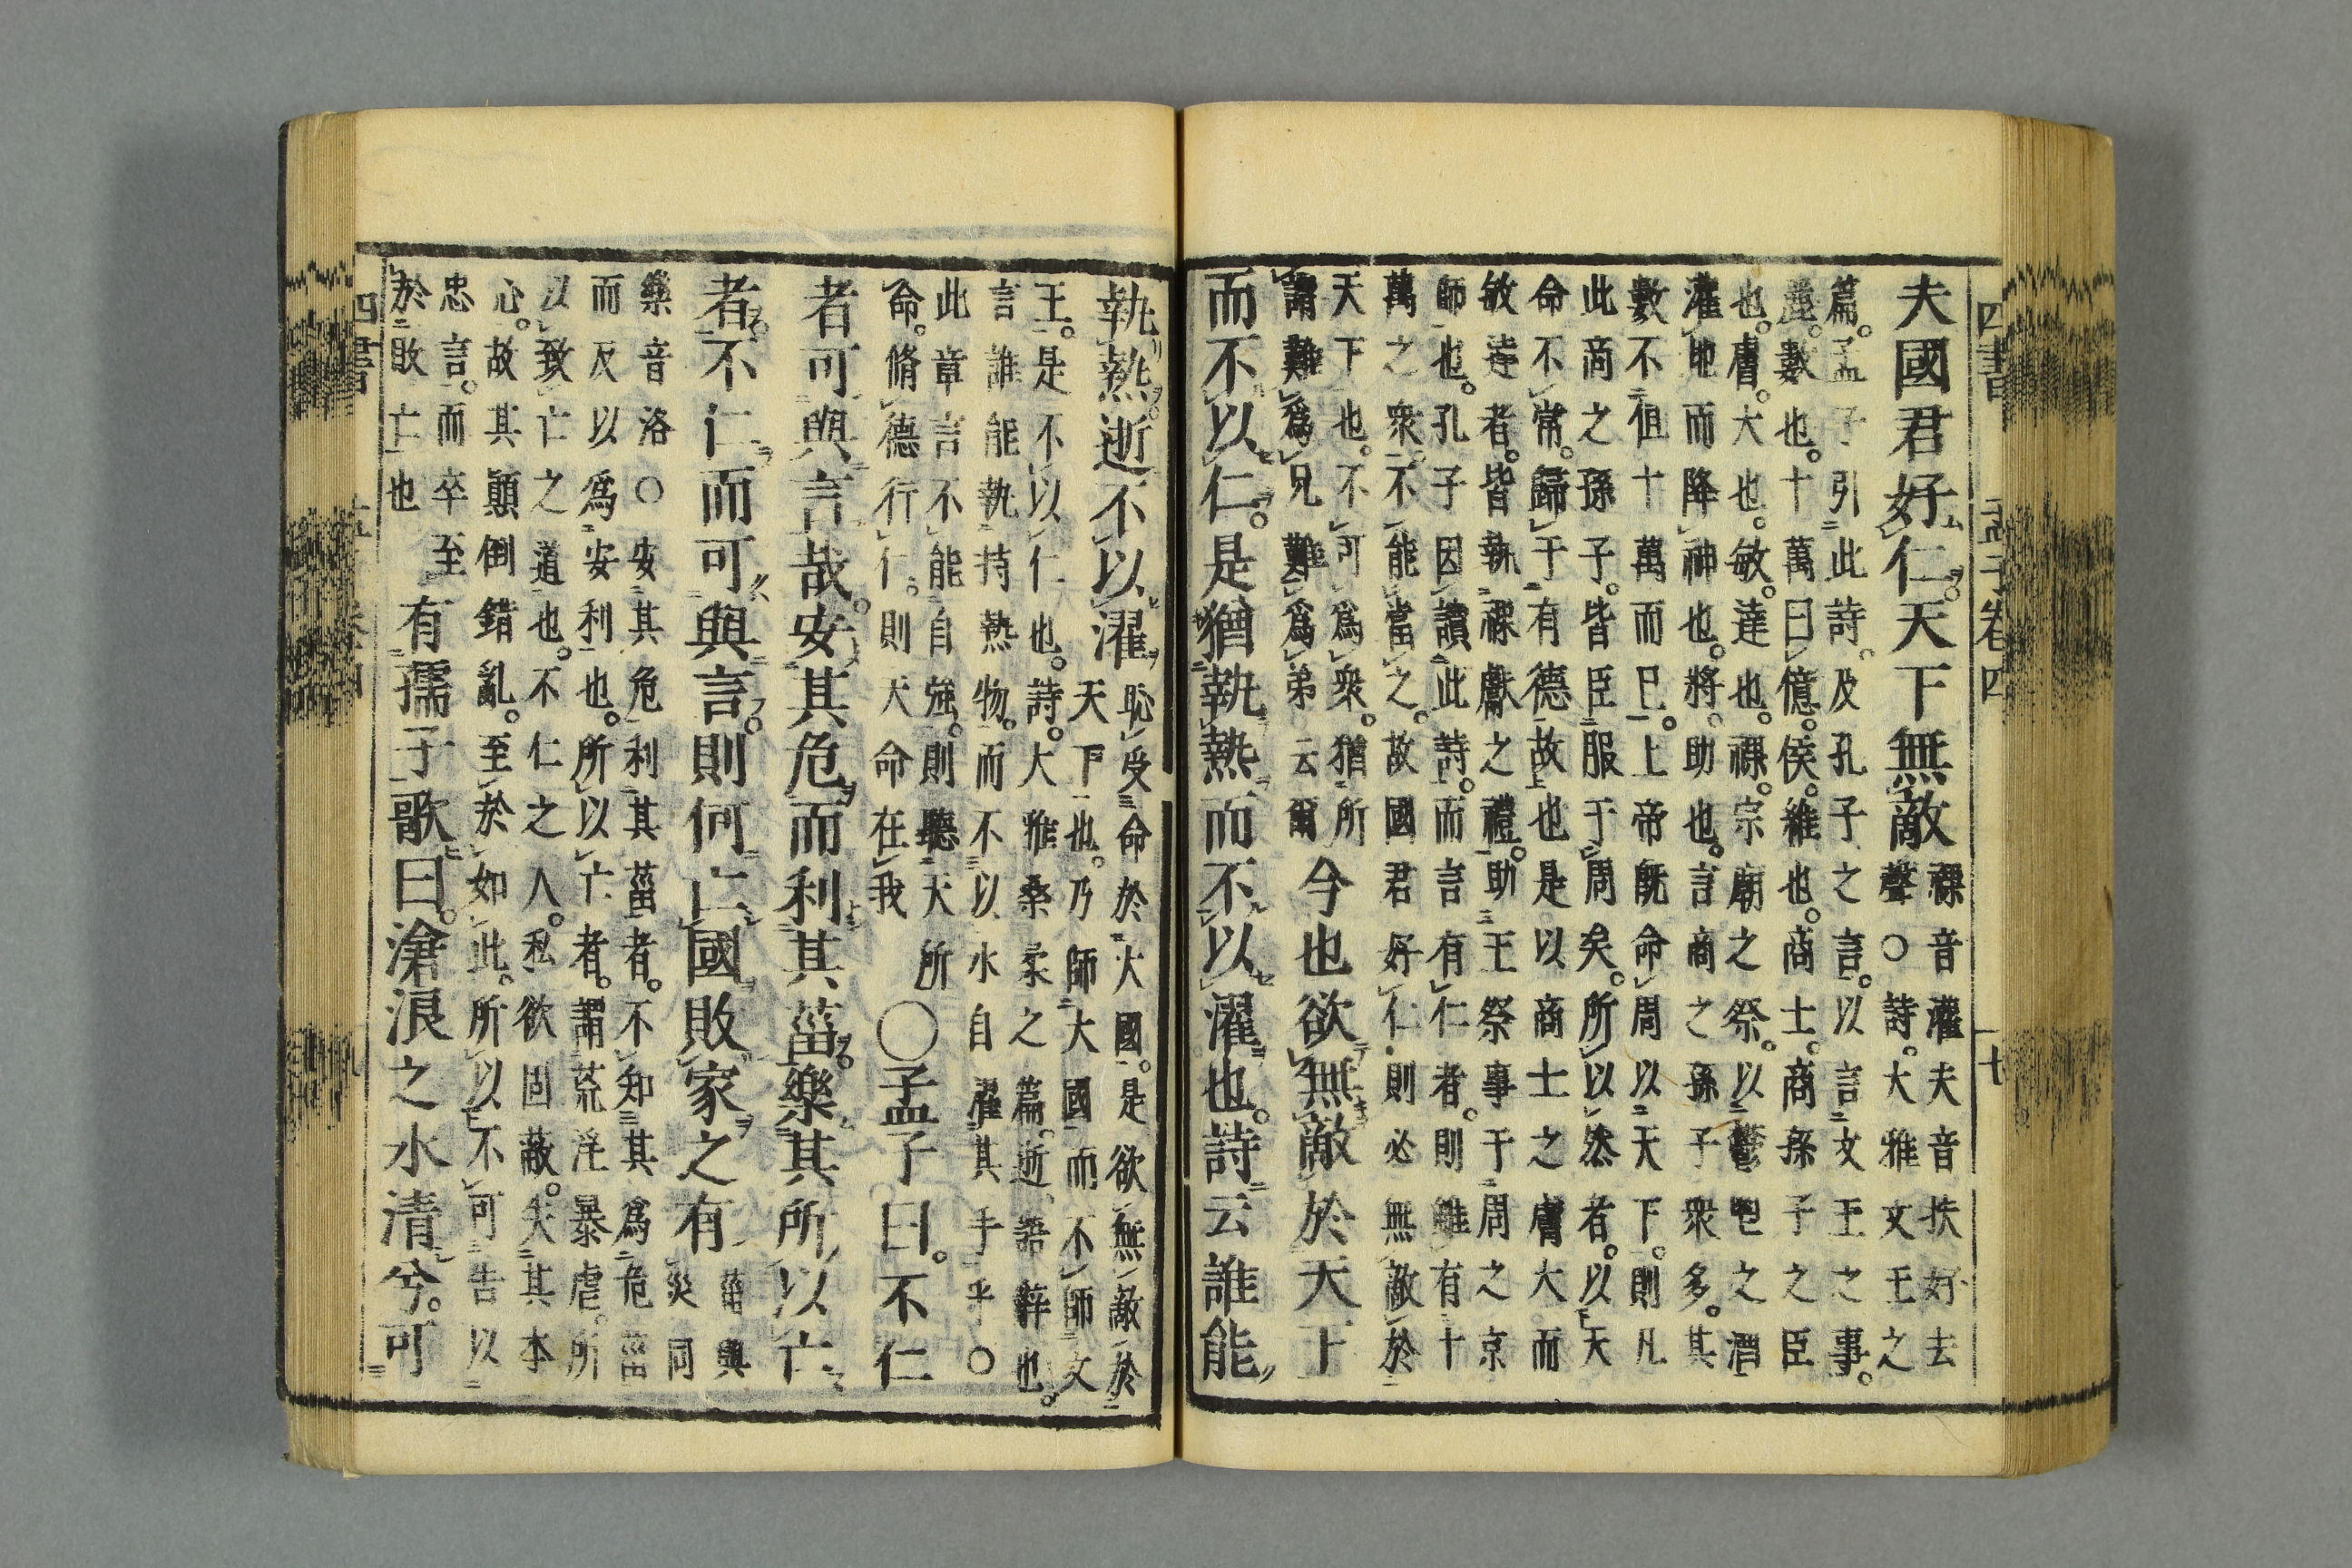 四書 孟子卷四 十七
夫國君好仁。天下無敵
裸音灌夫音扶好去
聲○詩。大雅文王之
篇。孟子引此詩。及孔子之言。以言文王之事。
麗。數也。十萬曰億。侯。維也。商士。商孫子之臣
也。膚。大也。敏。達也。祼。宗廟之祭。以鬱鬯之酒
灌地而降神也。將。助也。言商之孫子衆多。其
數不但十萬而已。上帝既命周以天下。則凡
此商之孫子。皆臣服于周矣。所以然者。以天
命不常。歸于有德故也是以商士之膚大而
敏達者。皆執祼獻之禮。助王祭事于周之京
師也。孔子因讀此詩。而言有仁者。則雖有十
萬之衆。不能當之。故國君好仁則必無敵於
天下也。不可爲衆。猶所
謂難爲兄難爲弟云爾
今也欲無敵於天下
而不以仁。是猶執熱而不以濯也。詩云誰能
執熱。逝不以濯
恥受命於大國。是欲無敵於
天下也。乃師大國而不師文
王。是不以仁也。詩。大雅桑柔之篇。逝。語辭也。
言誰能執持熱物。而不以水自濯其手乎○
此章言不能自強。則聽天所
命。脩德行仁。則天命在我
○孟子曰。不仁
者可與言哉。安其危而利其菑。樂其所以亡
者。不仁而可與言。則何亡國敗家之有
菑與
災同
樂音洛○安其危利其菑者。不知其爲危菑
而反以爲安利也。所以亡者。謂荒淫暴虐。所
以致亡之道也。不仁之人。私欲固蔽。失其本
心。故其顛倒錯亂。至於如此。所以不可告以
忠言。而卒至
於敗亡也
有孺子歌曰。滄浪之水清兮。可
四書